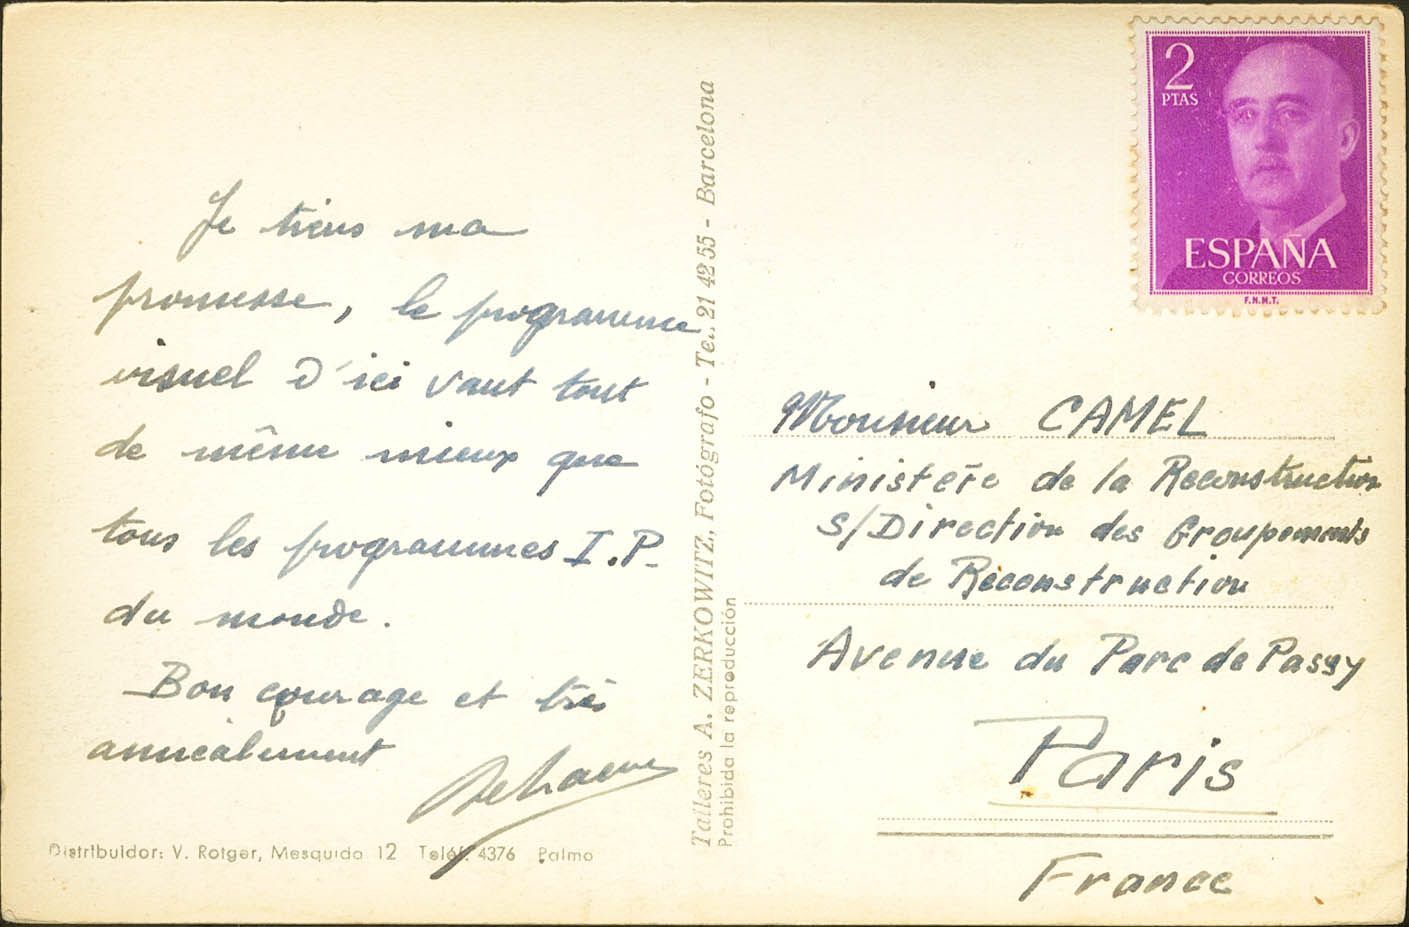 Je tiens ma
promesse, le programme
visuel d'ici vaut tout
de même mieux que
tous les programmes I.P.
du monde.
Bon courage et très
amicalement
Distribuidor: V. Rotger, Mesquida 12 Teléf. 4376 Palma
Talleres A. ZERKOWITZ, Fotógrafo - Tel. 21 42 55 - Barcelona
Prohibida la reproducción
2
PTAS
ESPAÑA
CORREOS
F.N.M.T.
Monsieur CAMEL
Ministère de la Reconstruction
S/Direction des Groupements
de Reconstruction
Avenue du Parc de Passy
Paris
France